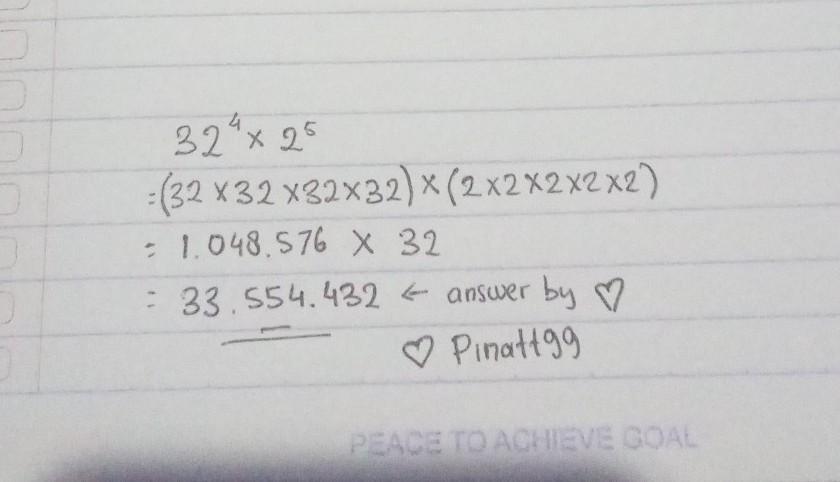 32⁴ × 2⁵
=(32 ×32 ×32×32)×(2×2×2×2×2)
= 1.048.576 × 32
= 33.554.432 ← answer by ♡
♡ Pinatt99
PEACE TO ACHIEVE GOAL